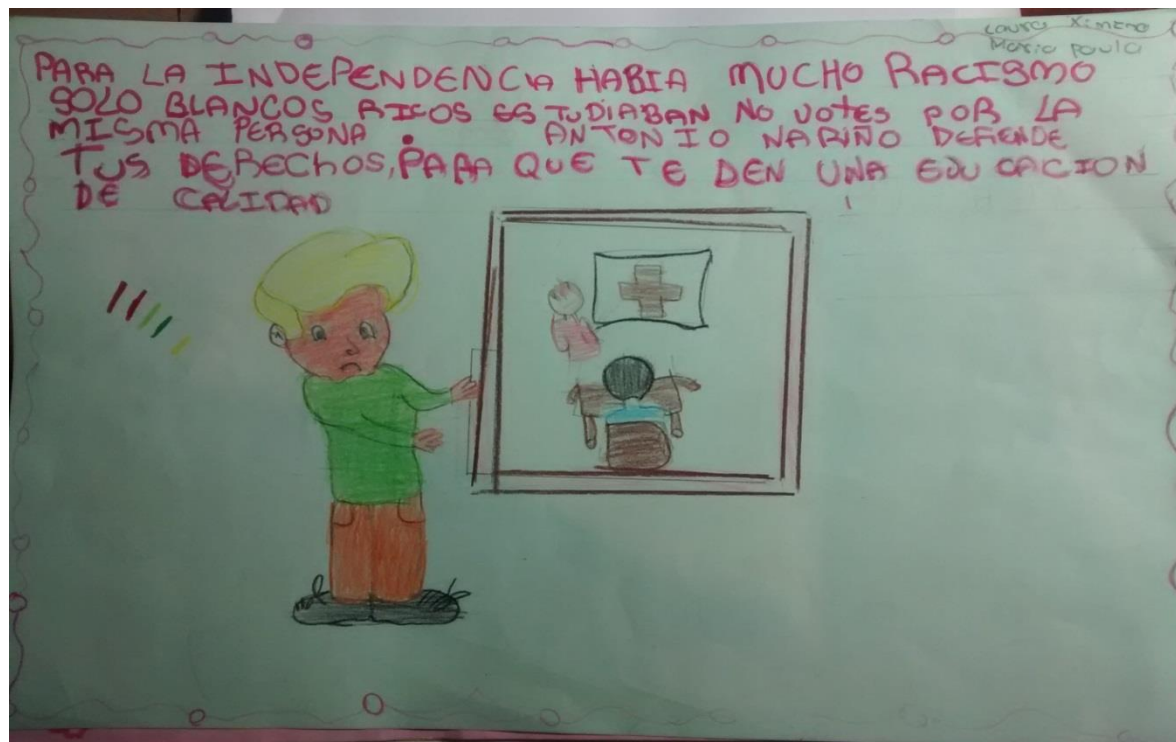 Laura Ximena
Maria paula
PARA LA INDEPENDENCIA HABIA MUCHO RACISMO
SOLO BLANCOS RICOS ESTUDIABAN NO VOTES POR LA
MISMA PERSONA. ANTONIO NARIÑO DEFIENDE
TUS DERECHOS, PARA QUE TE DEN UNA EDUCACION
DE CALIDAD